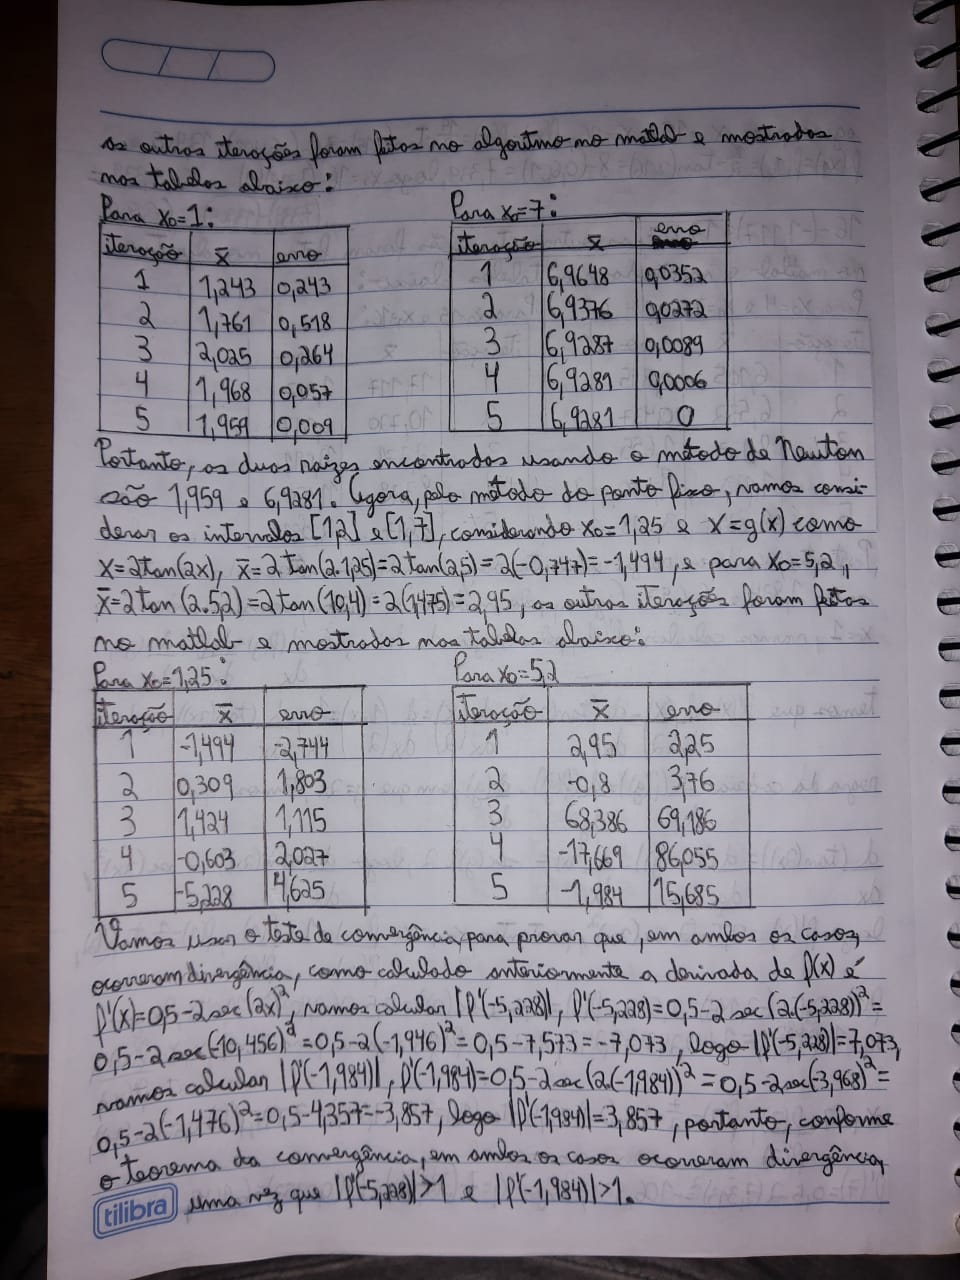 as outras iterações foram feitas no algoritmo no matlab e mostradas
nas tabelas abaixo:
Para x₀=1:
iteração x̄ erro
1 1,243 0,243
2 1,761 0,518
3 2,025 0,264
4 1,968 0,057
5 1,959 0,009
Para x₀=7:
iteração x̄ erro
1 6,9648 0,0352
2 6,9376 0,0272
3 6,9287 0,0089
4 6,9281 0,0006
5 6,9281 0
Portanto, as duas raízes encontradas usando o método de Newton
são 1,959 e 6,9281. Agora, pelo método do ponto fixo, vamos consi-
derar os intervalos [1,2] e [1,7], considerando x₀=1,25 e x=g(x) como
x=2tan(2x), x̄=2 tan(2.1,25)=2tan(2,5)=2(-0,747)=-1,494, e para x₀=5,2,
x̄=2tan(2.5,2)=2tan(10,4)=2(1,475)=2,95, as outras iterações foram feitas
no matlab e mostradas nas tabelas abaixo:
Para x₀=1,25:
iteração x̄ erro
1 -1,494 -2,744
2 0,309 1,803
3 1,424 1,115
4 -0,603 2,027
5 -5,228 4,625
Para x₀=5,2
iteração x̄ erro
1 2,95 2,25
2 -0,8 3,76
3 68,386 69,186
4 -17,669 86,055
5 -1,984 15,685
Vamos usar o teste de convergência, para provar que, em ambos os casos,
ocorreram divergência, como calculado anteriormente a derivada de f(x) é
f'(x)=0,5-2sec(2x)², vamos calcular |f'(-5,228)|, f'(-5,228)=0,5-2 sec(2.(-5,228))²=
0,5-2sec(-10,456)²=0,5-2(-1,946)²=0,5-7,573=-7,073, logo |f'(-5,228)|=7,073,
vamos calcular |f'(-1,984)|, f'(-1,984)=0,5-2sec(2.(-1,984))²=0,5-2sec(-3,968)²=
0,5-2(-1,476)²=0,5-4,357=-3,857, logo |f'(-1,984)|=3,857, portanto, conforme
o teorema da convergência, em ambos os casos ocorreram divergência,
uma vez que |f'(-5,228)|>1 e |f'(-1,984)|>1.
tilibra